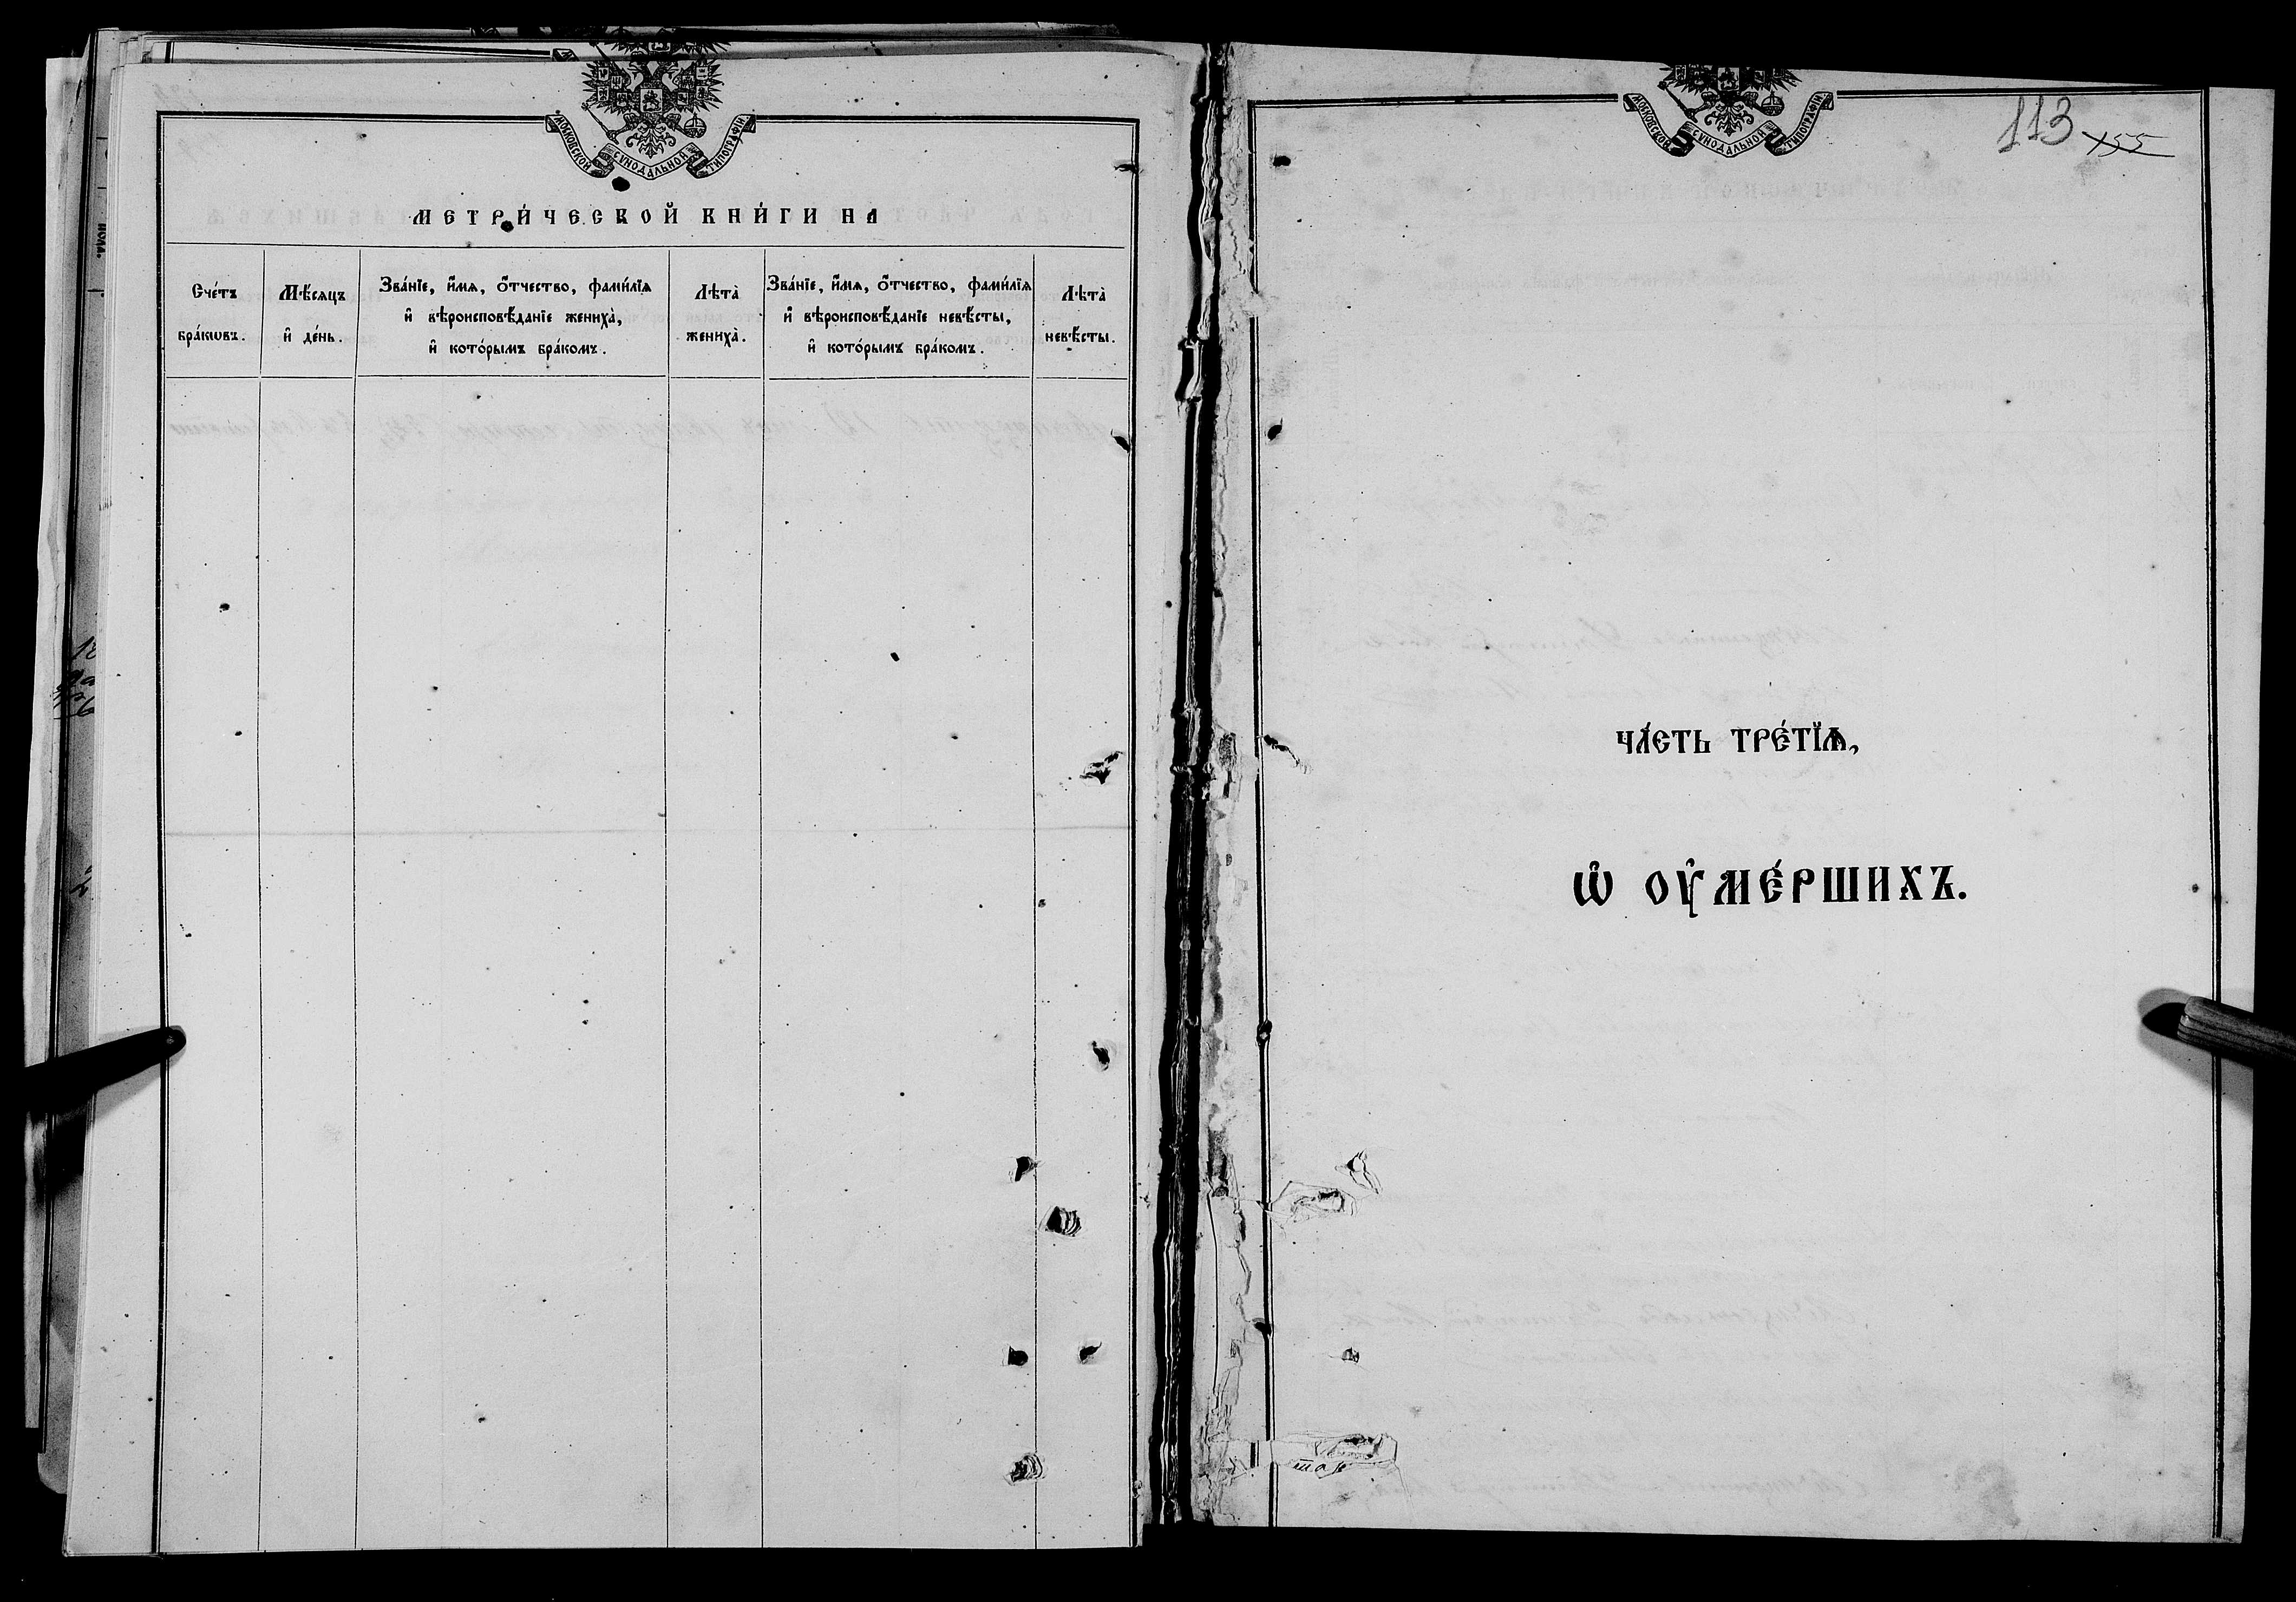 МОСКОВСКОЙ СѴНОДАЛЬНОЙ ТИПОГРАФІИ
МЕТРИ́ЧЕСКОЙ КНИ́ГИ НА
Сче́тъ бра́кѡвъ.
Мѣ́сяцъ и҆ де́нь.
Зва́нїе, и҆́мѧ, ѻ҆́тчество, фами́лїѧ
и҆ вѣроисповѣ́данїе жениха̀,
и҆ кото́рымъ бра́комъ.
Лѣта̀ жениха̀.
Зва́нїе, и҆́мѧ, ѻ҆́тчество, фами́лїѧ
и҆ вѣроисповѣ́данїе невѣ́сты,
и҆ кото́рымъ бра́комъ.
Лѣта̀ невѣ́сты.
МОСКОВСКОЙ СѴНОДАЛЬНОЙ ТИПОГРАФІИ
113 155
ЧА́СТЬ ТРЕ́ТЇѦ,
Ѡ҆ ОУ҆МЕ́РШИХЪ.